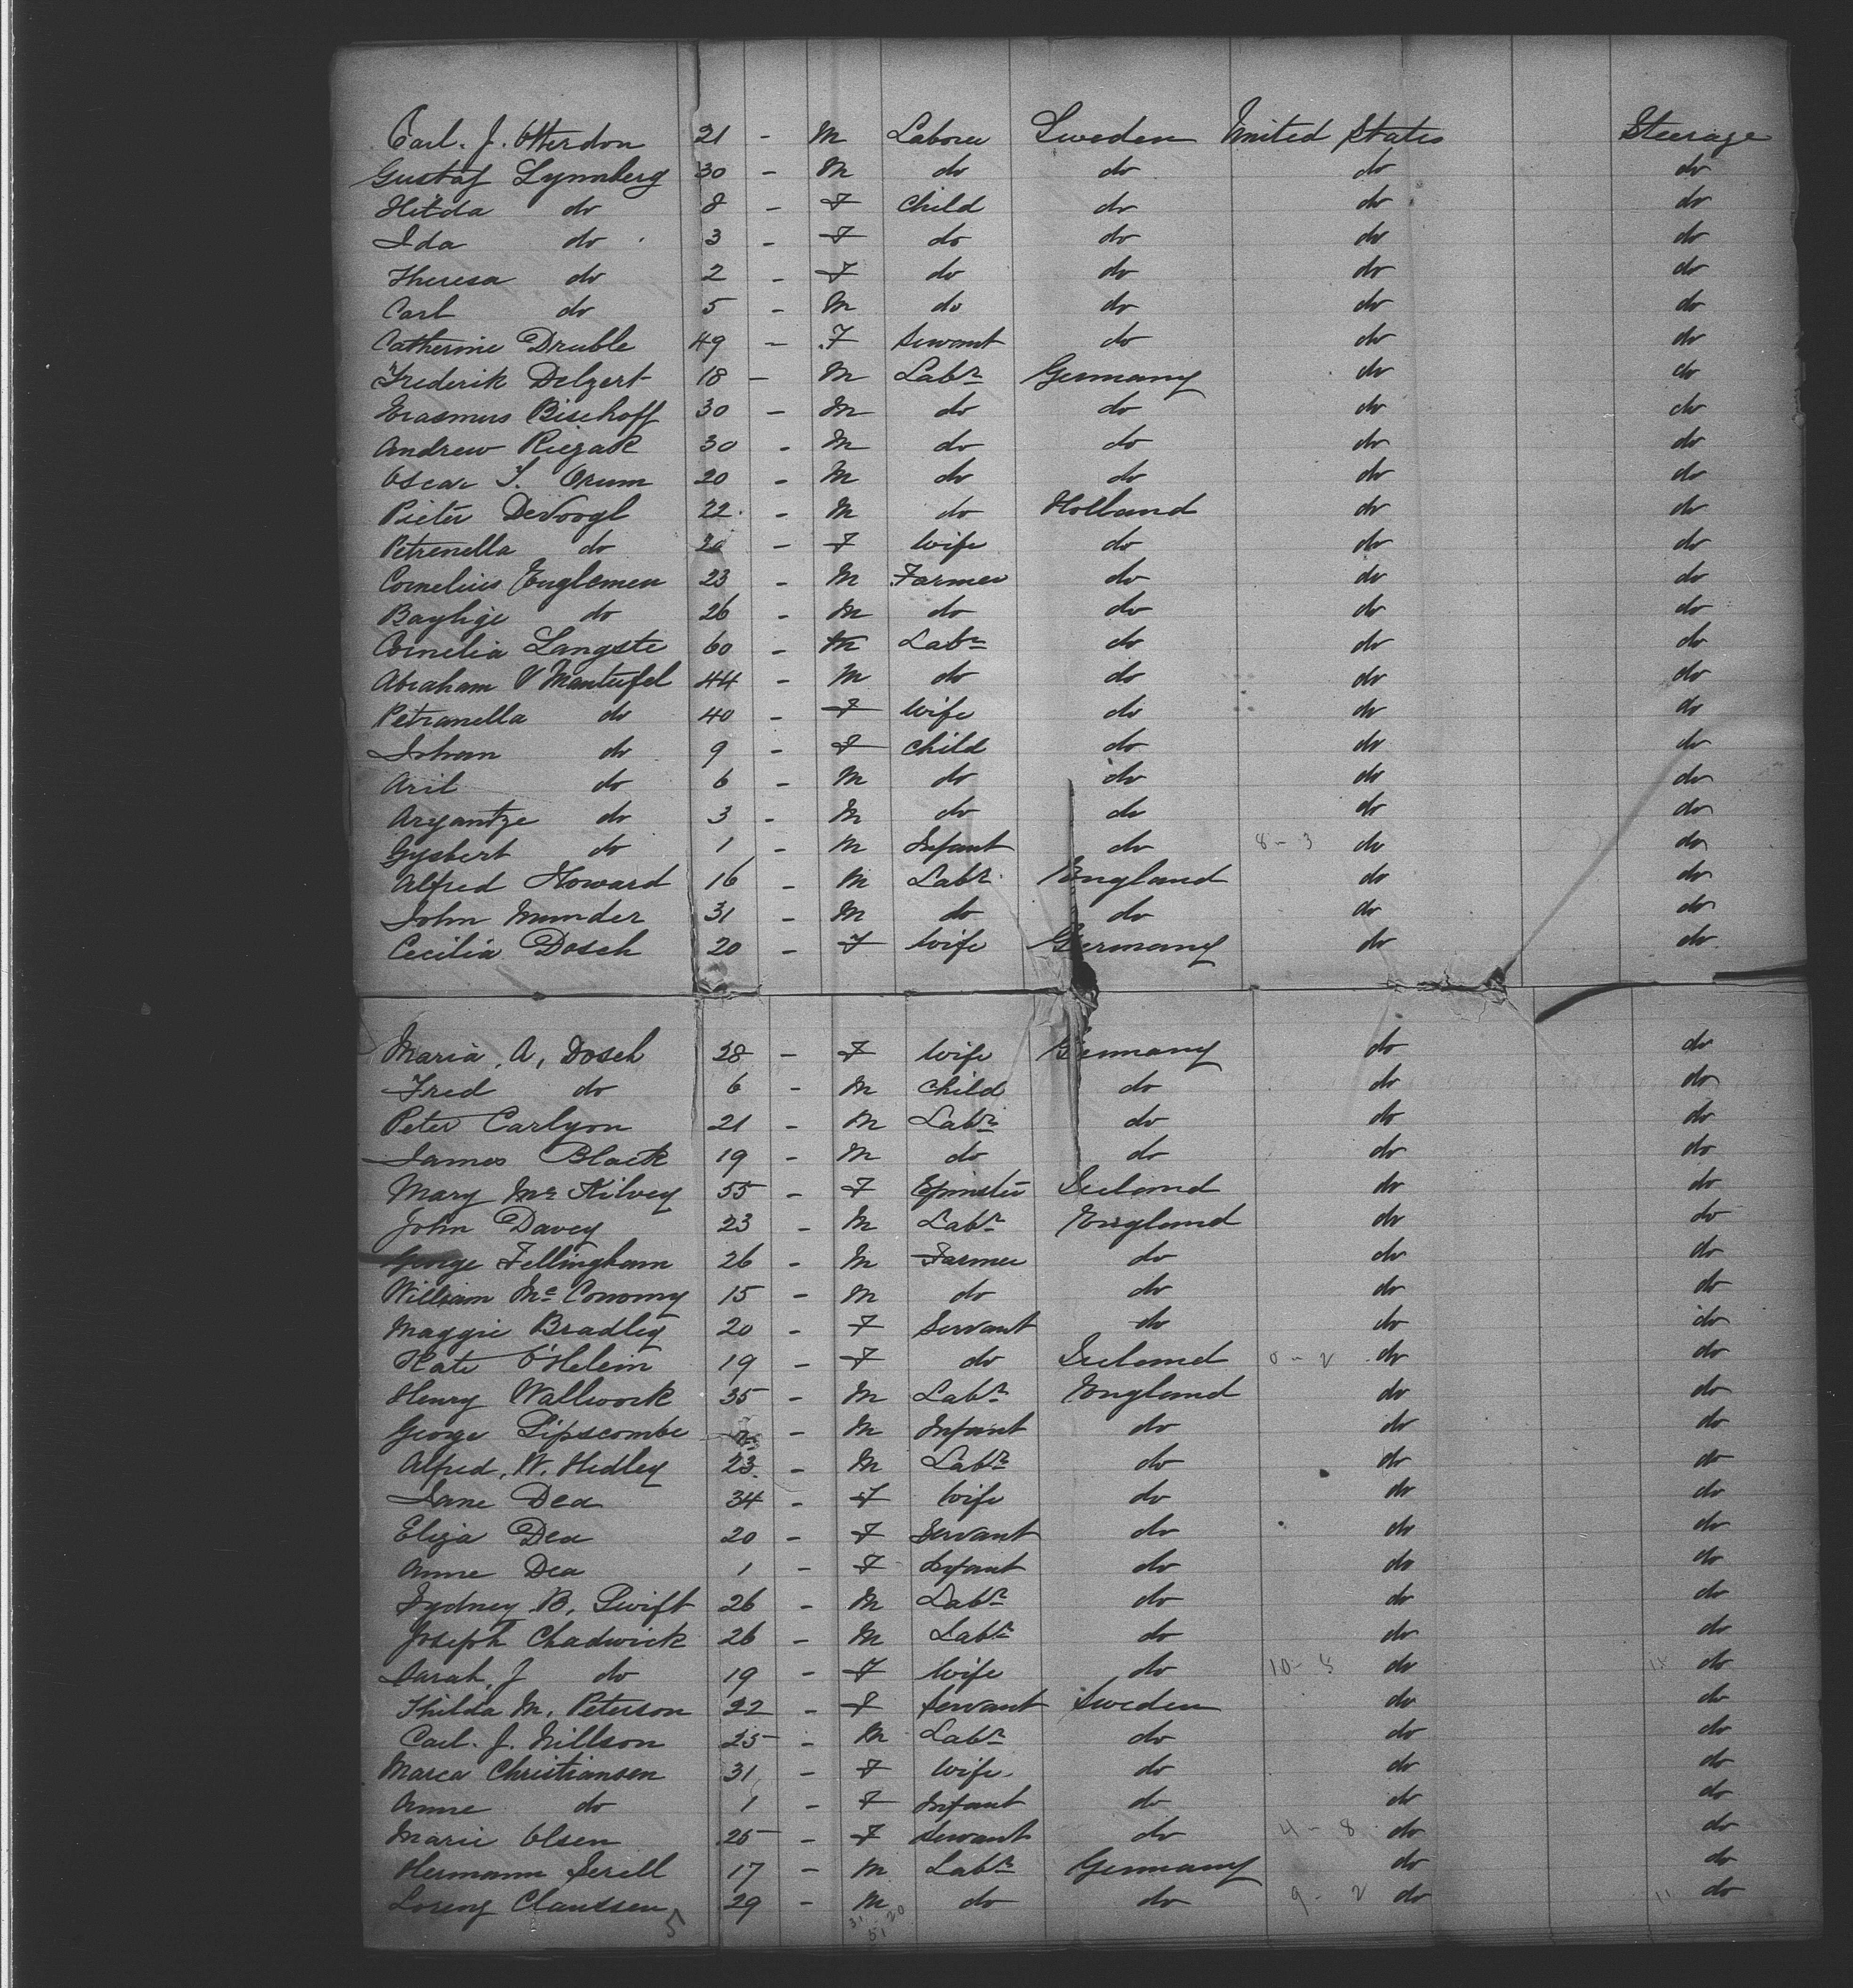 Carl. J. Otterdon 21 - M Laborer Sweden United States Steerage
Gustaf Lynnberg 30 - M do do do do
Hilda do 8 - F Child do do do
Ida do 3 - F do do do do
Theresa do 2 - F do do do do
Carl do 5 - M do do do do
Catherine Druble 49 - F Servant do do do
Frederik Delzert 18 - M Labr Germany do do
Erasmus Bischoff 30 - M do do do do
Andrew Riezak 30 - M do do do do
Oscar S. Orum 20 - M do do do do
Pieter DeVoogl 22 - M do Holland do do
Petrenella do 20 - F Wife do do do
Cornelius Englemen 23 - M Farmer do do do
Baylige do 26 - M do do do do
Cornelia Langste 60 - M Labr do do do
Abraham V Manteufel 44 - M do do do do
Petranella do 40 - F Wife do do do
Johan do 9 - F Child do do do
Aril do 6 - M do do do do
Aryantze do 3 - M do do do do
Gysbert do 1 - M Infant do 8 - 3 do do
Alfred Howard 16 - M Labr England do do
John Munder 31 - M do do do do
Cecilia Dosch 20 - F Wife Germany do do
Maria, A, Dosch 28 - F Wife Germany do do
Fred do 6 - M Child do do do
Peter Carlyon 21 - M Labr do do do
James Black 19 - M do do do do
Mary Mc Kilvey 55 - F Spinster Ireland do do
John Davey 23 - M Labr England do do
George Fellingham 26 - M Farmer do do do
William Mc Conomy 15 - M do do do do
Maggie Bradley 20 - F Servant do do do
Kate O'Helein 19 - F do Ireland 0 - 2 do do
Henry Wallwork 35 - M Labr England do do
George Lipscombe - M Infant do do do
Alfred, W. Hedley 23 - M Labr do do do
Jane Dea 34 - F Wife do do do
Eliza Dea 20 - F Servant do do do
Anne Dea 1 - F Infant do do do
Sydney B. Swift 26 - M Labr do do do
Joseph Chadwick 26 - M Labr do do do
Sarah, J do 19 - F Wife do 10 - 5 do do
Thilda M. Peterson 22 - F Servant Sweden do do
Carl. J. Nillson 25 - M Labr do do do
Marea Christiansen 31 - F Wife do do do
Anne do 1 - F Infant do do do
Marie Olsen 25 - F Servant do 4 - 8 do do
Hermann Serell 17 - M Labr Germany do do
Losung Claussen 29 - M do do 9 - 2 do 11 do
5 31 20
51